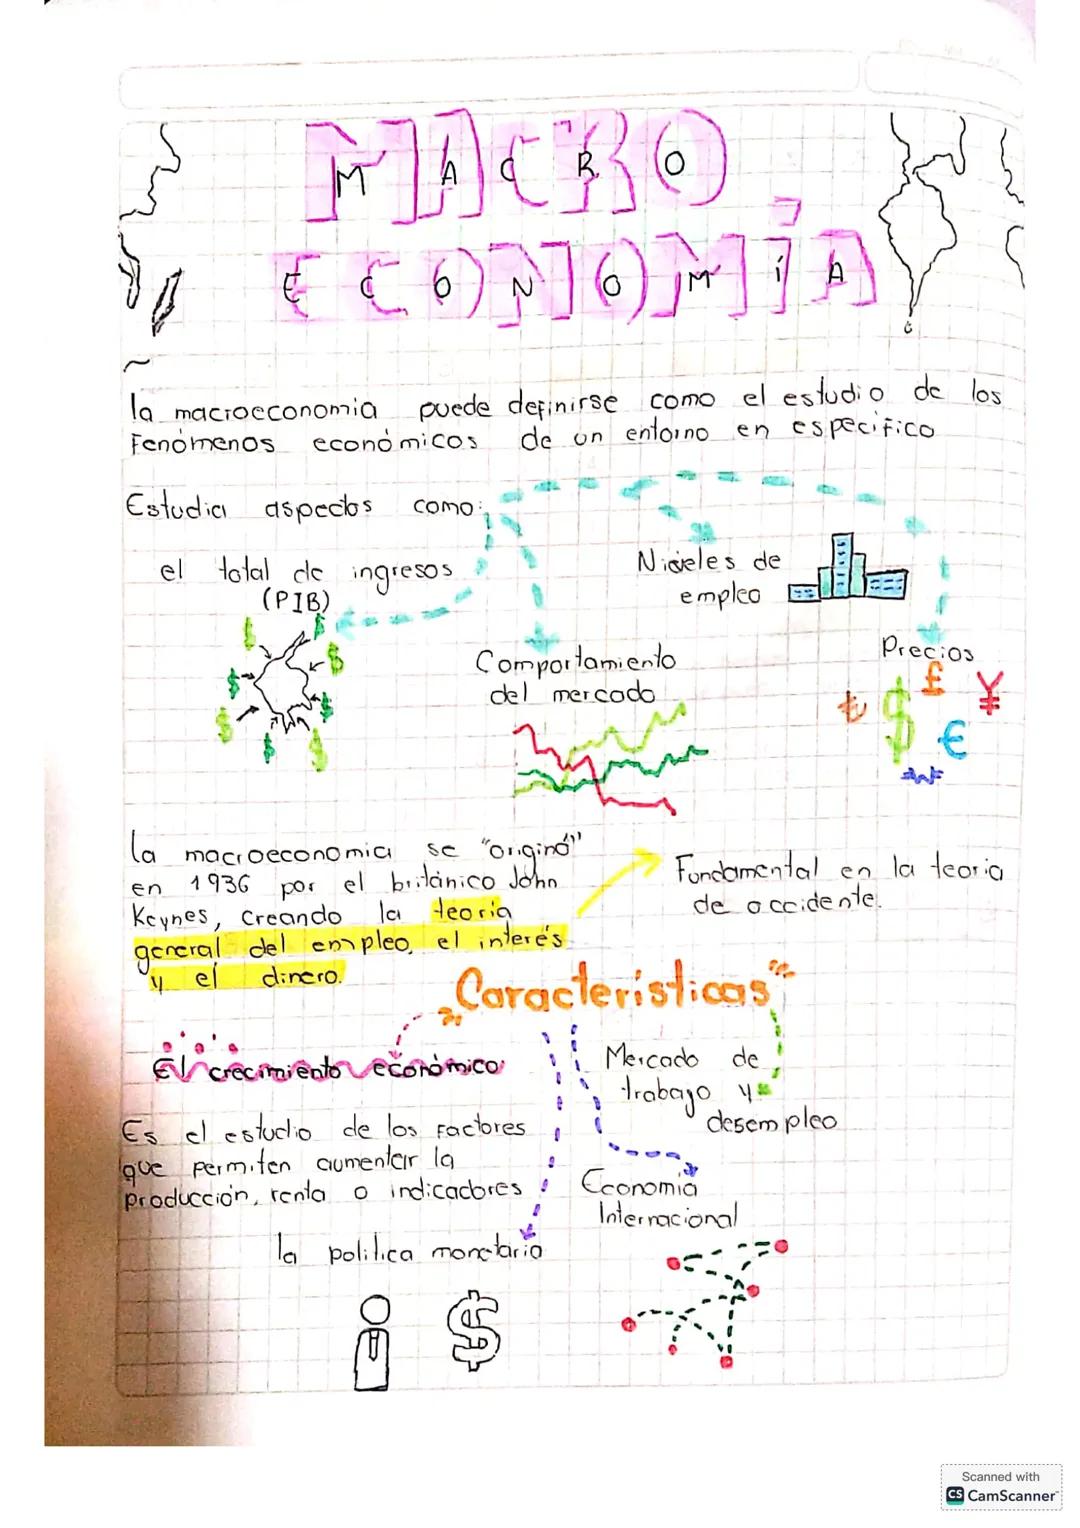 MACRO
ECONOMÍA
la macroeconomia puede definirse como el estudio de los
Fenómenos económicos de un entorno en especifico
Estudia aspectos como:
el total de ingresos
(PIB)
Niveles de
empleo
Comportamiento
del mercado
Precios
$ $ $ $ $ $ $ $
₺ $ £ ¥ €
la macroeconomia se "originó"
en 1936 por el británico John
Keynes, creando la teoria
general del empleo, el interés
y el dinero.
Fundamental en la teoria
de occidente.
Caracteristicas
El crecimiento económico
Es el estudio de los Factores
que permiten aumentar la
producción, renta o indicadores
Mercado de
trabajo y
desempleo
Economia
Internacional
la politica monetaria
$
Scanned with
CS CamScanner